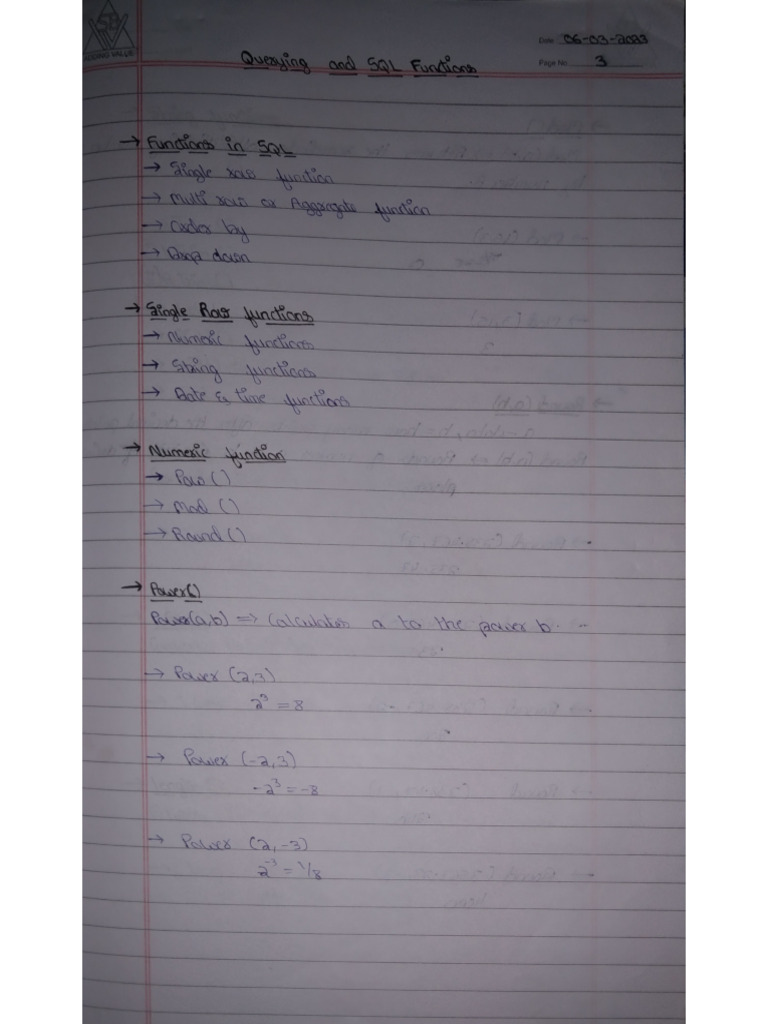 ADDING VALUE
Date 06-03-2023
Querying and SQL Functions
Page No 3
→ Functions in SQL
→ Single row function
→ Multi row or Aggregate function
→ Order by
→ Drop down
→ Single Row functions
→ Numeric functions
→ String functions
→ Date & time functions
→ Numeric function
→ Pow()
→ Mod ()
→ Round()
→ Power()
Power(a,b) => Calculates a to the power b.
→ Power (2,3)
2³ = 8
→ Power (-2,3)
-2³ = -8
→ Power (2,-3)
2⁻³ = 1/8